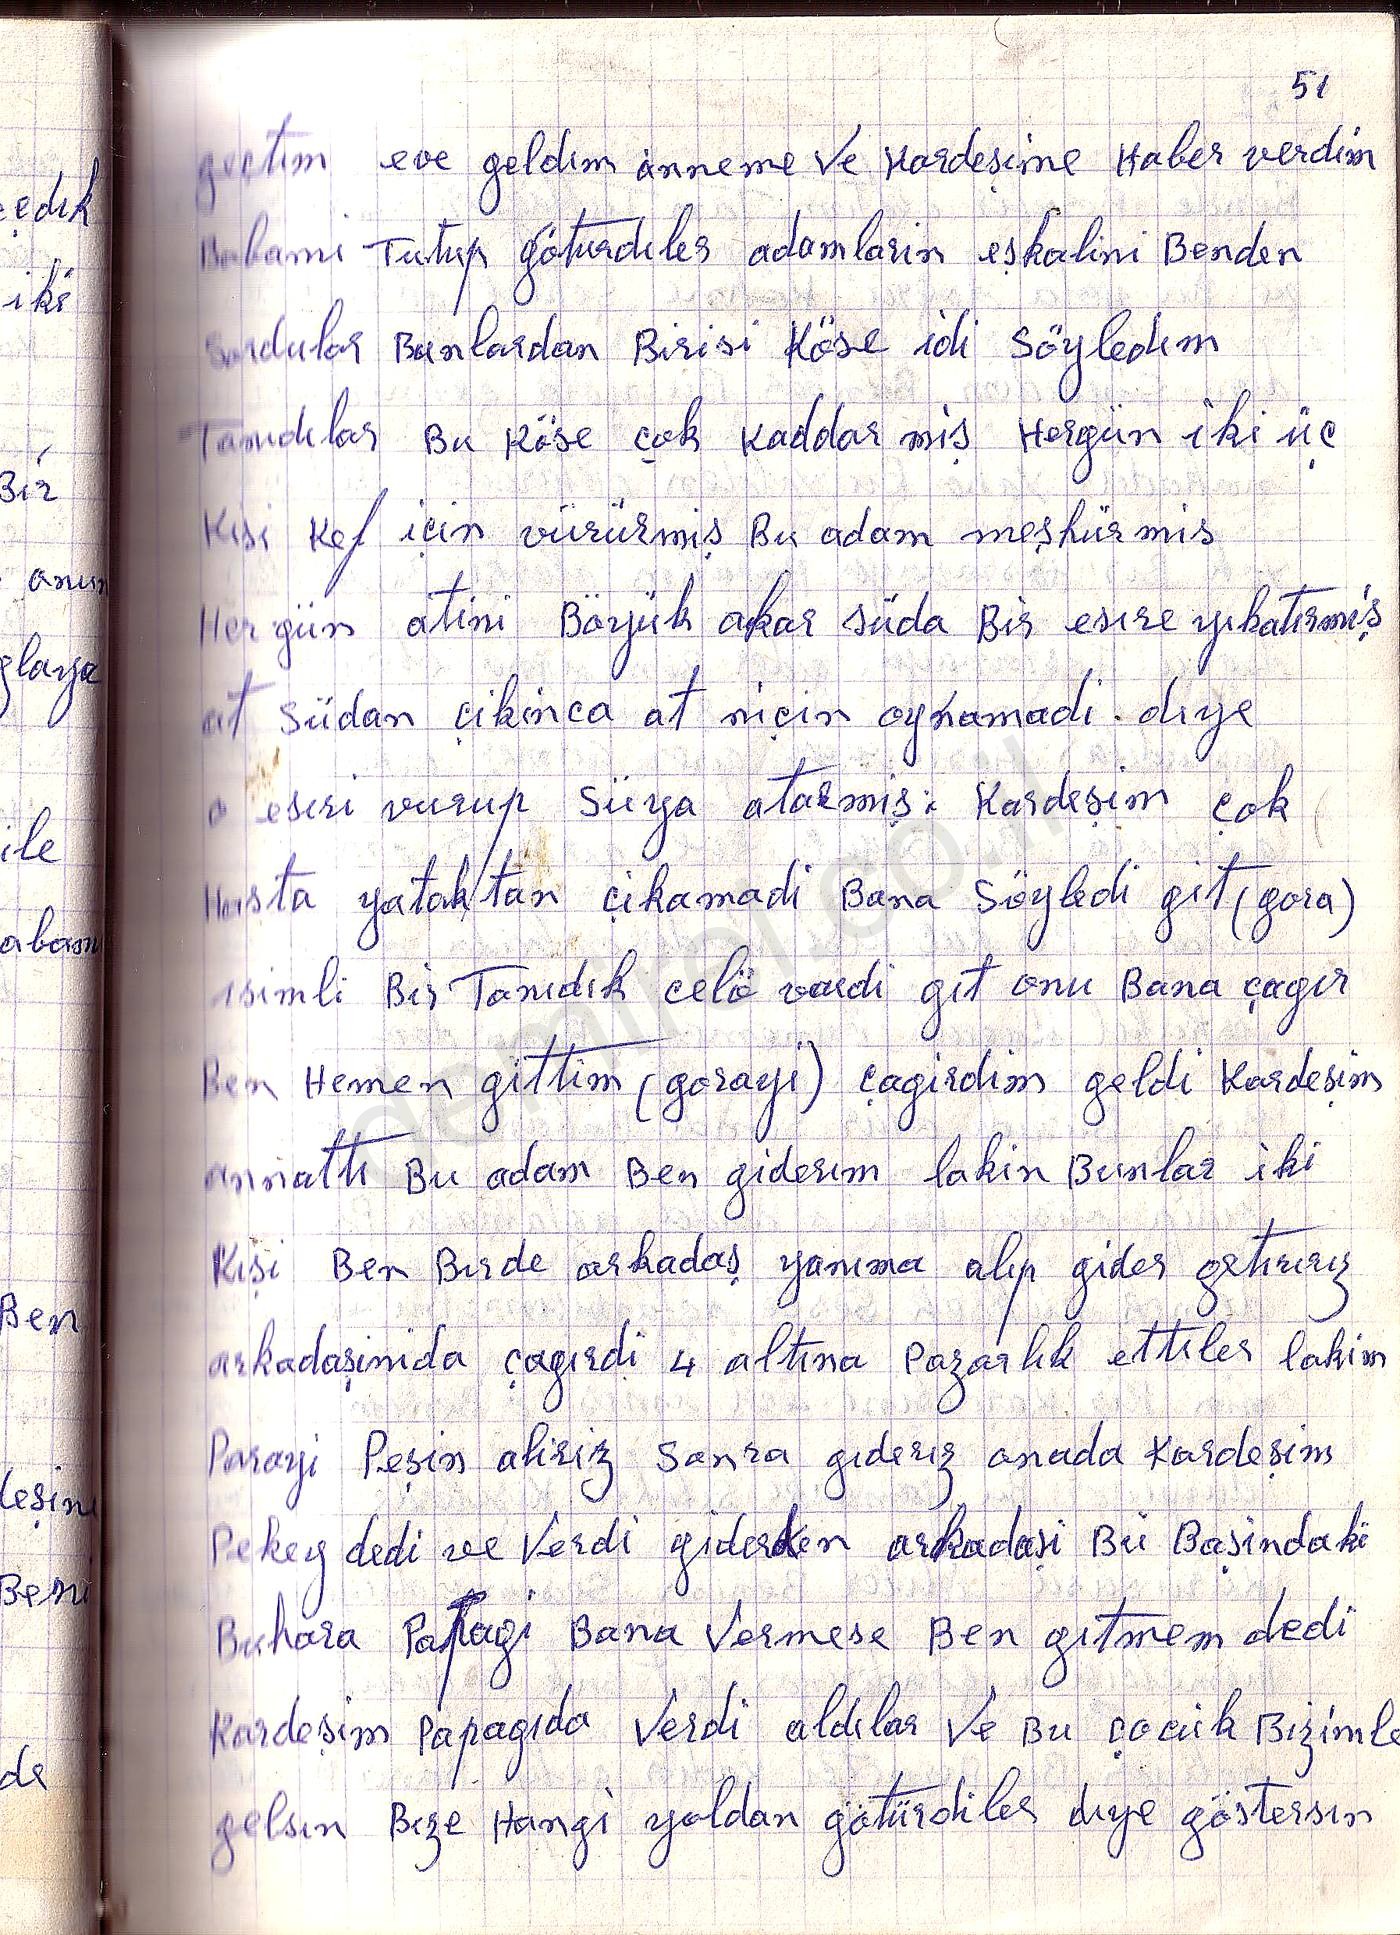 51
geçtım eve geldım anneme Ve Kardeşime Haber verdim
Babami Tutup göturdıler adamların eşkalini Benden
Sordular Bunlardan Birisi Köse idi Söyledım
Tanıdılar Bu Köse çok Kaddar miş Hergün iki üç
Kişi Kef için vürürmiş Bu adam meşhürmis
Her gün atini Böyük akar Süda Bir esıre yıkatırmiş
at Südan çikinca at niçin oynamadi. dıye
o esıri vurup Süya atarmiş: Kardeşim çok
Hasta yataktan çikamadi Bana Söyledi git (gora)
isimli Bir Tanıdık celö vardi gıt onu Bana çagır
Ben Hemen gittim (gorayi) çagirdim geldi Kardeşim
annattı Bu adam Ben giderım lakin Bunlar iki
Kişi Ben Bırde arkadaş yanıma alıp gider getırırız
arkadaşinida çagırdi 4 altına Pazarlık ettıler lakim
Parayi Peşin aliriz Sonra gıderız onada Kardeşim
Pekey dedi ve Verdi giderken arkadaşi Bü Başindaki
Buhara Papagi Bana Vermese Ben gıtmem dedi
Kardeşim Papagıda Verdi aldılar Ve Bu çocük Bizimle
gelsın Bıze Hangi yoldan götürdiler dıye göstersın
edık
iki
Bir
ile
Ben
Beni
de
demirel.co.il